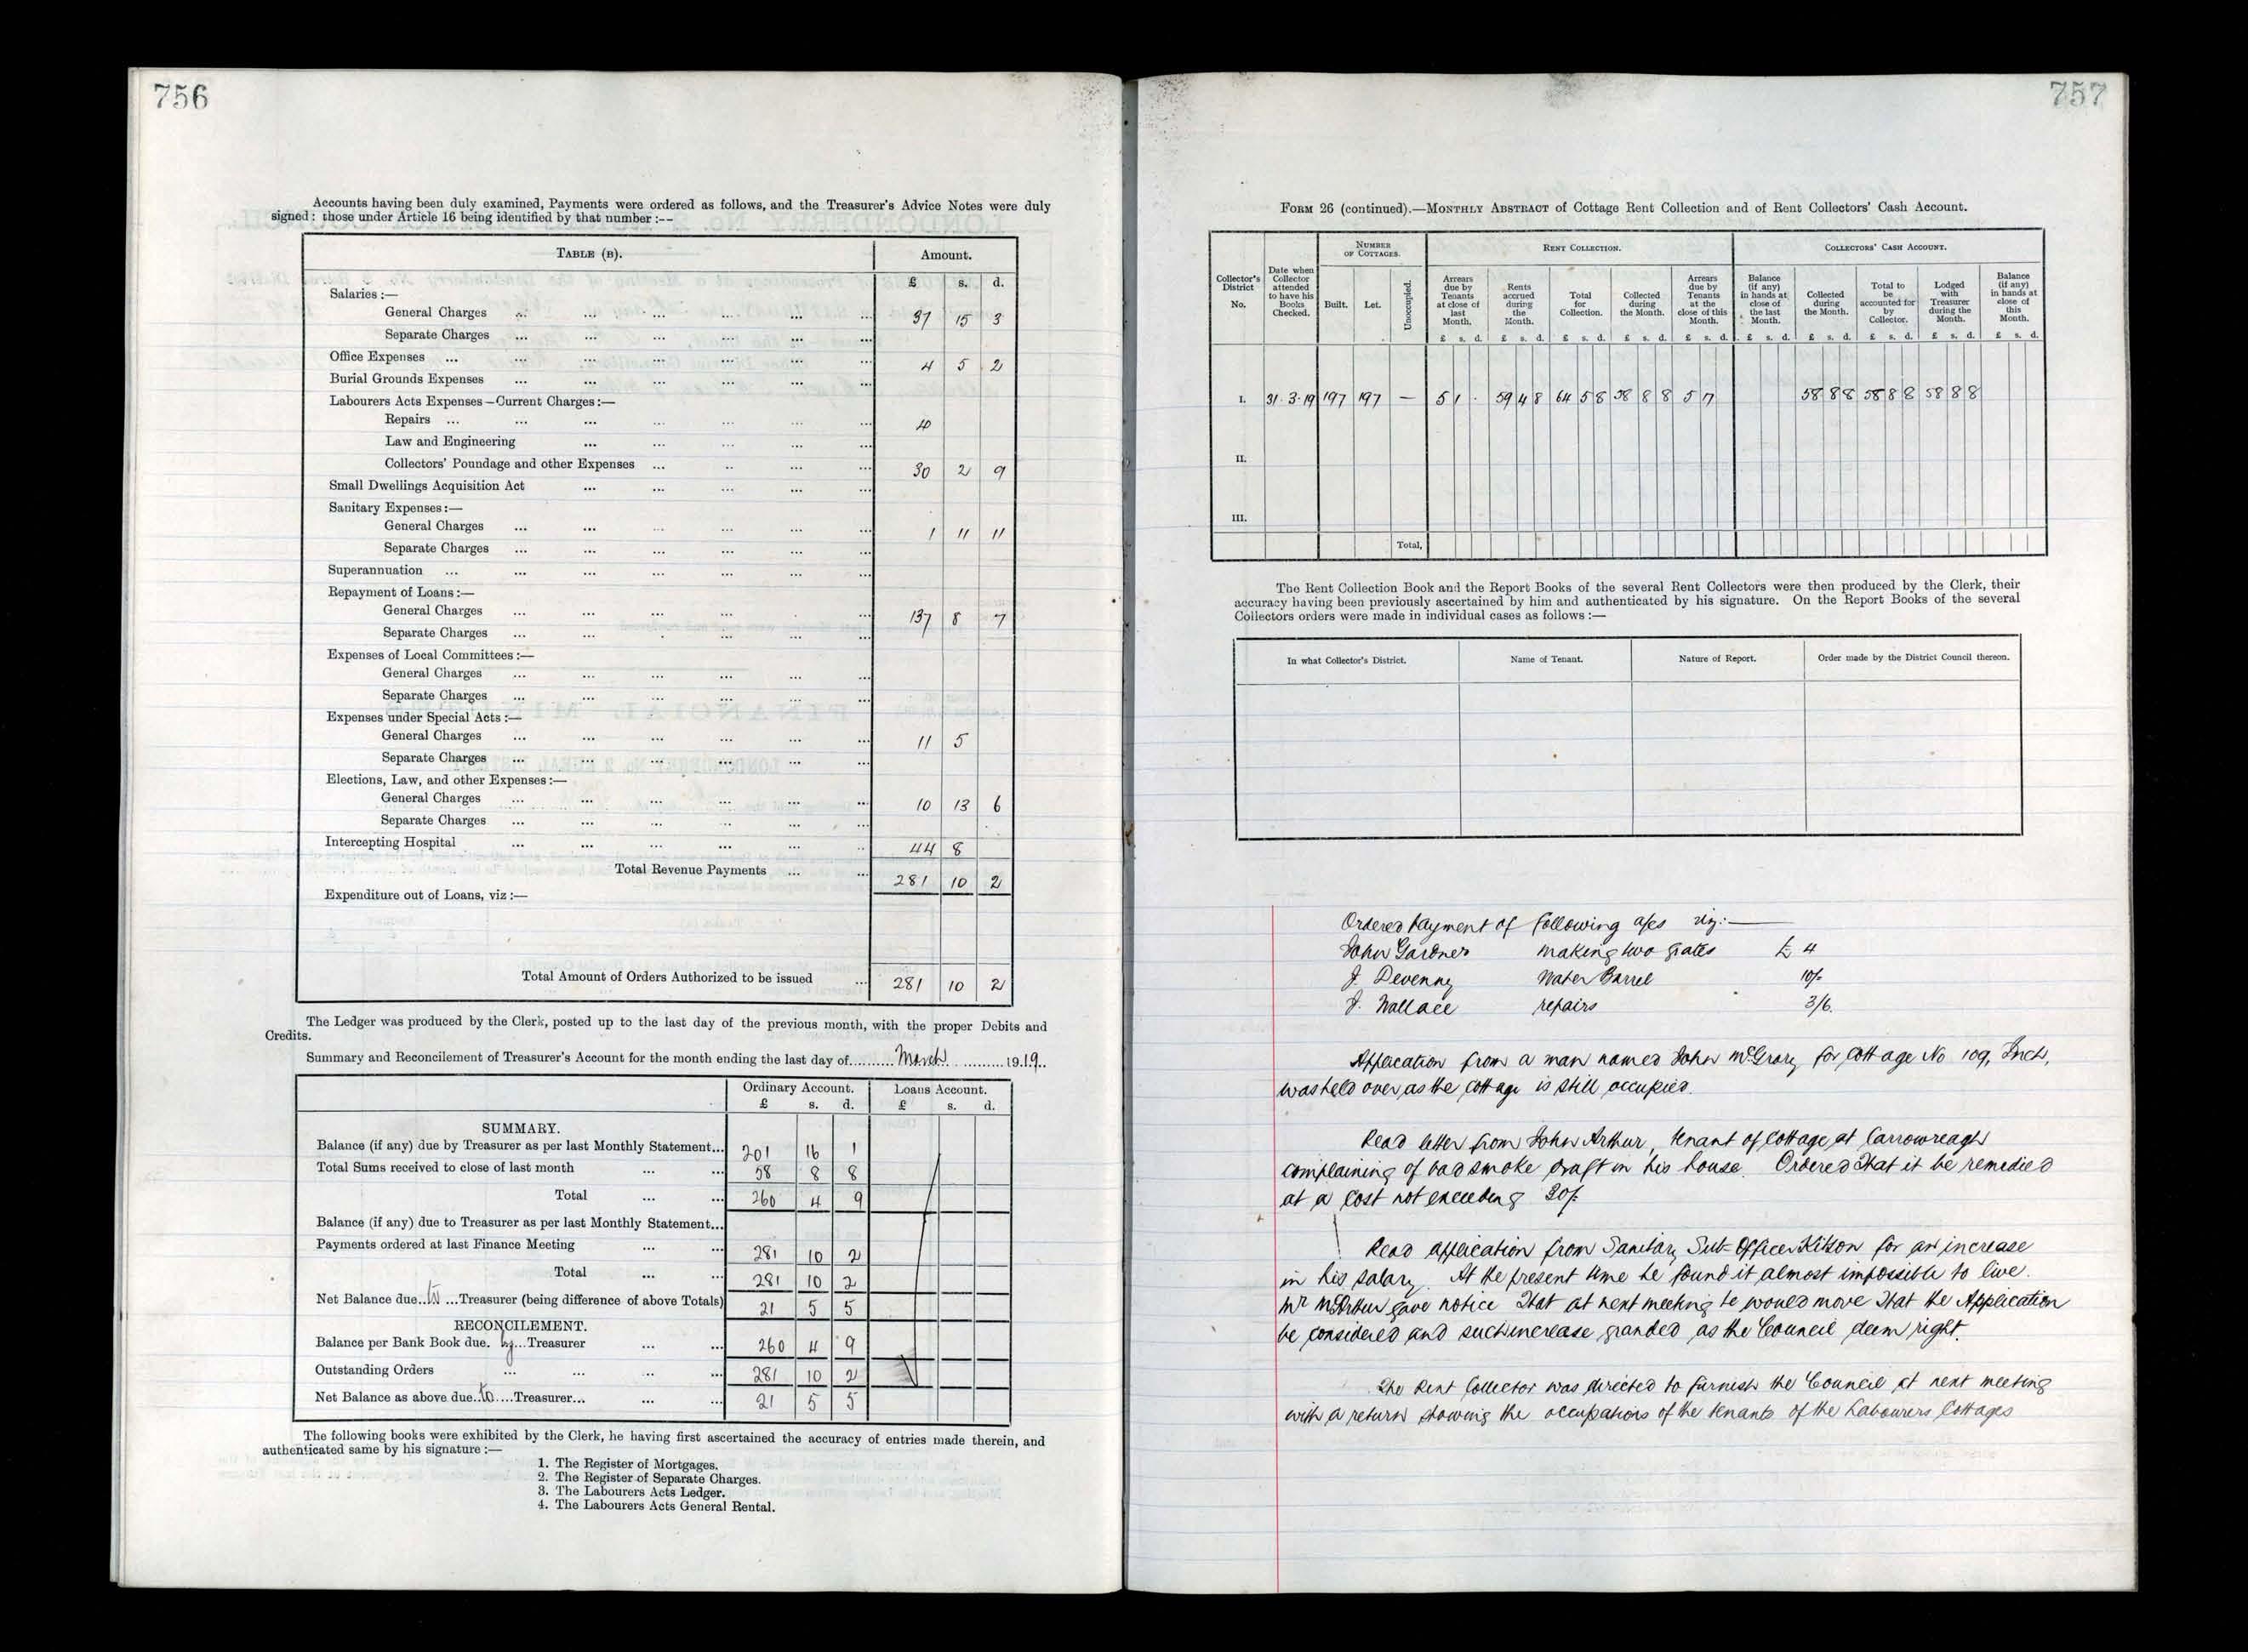 756
Accounts having been duly examined, Payments were ordered as follows, and the Treasurer's Advice Notes were duly
signed: those under Article 16 being identified by that number :--
TABLE (B). Amount.
£ s. d.
Salaries :—
General Charges ... ... ... ... ... ... 37 15 3
Separate Charges ... ... ... ... ... ...
Office Expenses ... ... ... ... ... ... ... 4 5 2
Burial Grounds Expenses ... ... ... ... ... ...
Labourers Acts Expenses—Current Charges :—
Repairs ... ... ... ... ... ... ... 4
Law and Engineering ... ... ... ... ...
Collectors' Poundage and other Expenses ... ... ... ... 30 2 9
Small Dwellings Acquisition Act ... ... ... ... ...
Sanitary Expenses :—
General Charges ... ... ... ... ... ... 1 11 11
Separate Charges ... ... ... ... ... ...
Superannuation ... ... ... ... ... ... ...
Repayment of Loans :—
General Charges ... ... ... ... ... ... 137 8 7
Separate Charges ... ... ... ... ... ...
Expenses of Local Committees :—
General Charges ... ... ... ... ... ...
Separate Charges ... ... ... ... ... ...
Expenses under Special Acts :—
General Charges ... ... ... ... ... ... 11 5
Separate Charges ... ... ... ... ... ...
Elections, Law, and other Expenses :—
General Charges ... ... ... ... ... ... 10 13 6
Separate Charges ... ... ... ... ... ...
Intercepting Hospital ... ... ... ... ... ... 44 8
Total Revenue Payments ... ... 281 10 2
Expenditure out of Loans, viz :—
Total Amount of Orders Authorized to be issued ... 281 10 2
The Ledger was produced by the Clerk, posted up to the last day of the previous month, with the proper Debits and
Credits.
Summary and Reconcilement of Treasurer's Account for the month ending the last day of.......... March ..........1919..
Ordinary Account. Loans Account.
£ s. d. £ s. d.
SUMMARY.
Balance (if any) due by Treasurer as per last Monthly Statement... 201 16 1
Total Sums received to close of last month ... ... 58 8 8
Total ... ... 260 4 9
Balance (if any) due to Treasurer as per last Monthly Statement...
Payments ordered at last Finance Meeting ... ... 281 10 2
Total ... ... 281 10 2
Net Balance due..to...Treasurer (being difference of above Totals) 21 5 5
RECONCILEMENT.
Balance per Bank Book due. by...Treasurer ... ... 260 4 9
Outstanding Orders ... ... ... ... 281 10 2
Net Balance as above due..to....Treasurer... ... ... 21 5 5
The following books were exhibited by the Clerk, he having first ascertained the accuracy of entries made therein, and
authenticated same by his signature :—
1. The Register of Mortgages.
2. The Register of Separate Charges.
3. The Labourers Acts Ledger.
4. The Labourers Acts General Rental.
757
FORM 26 (continued).—MONTHLY ABSTRACT of Cottage Rent Collection and of Rent Collectors' Cash Account.
Collector's District No. Date when Collector attended to have his Books Checked. NUMBER OF COTTAGES. RENT COLLECTION. COLLECTORS' CASH ACCOUNT.
Built. Let. Unoccupied. Arrears due by Tenants at close of last Month. Rents accrued during the Month. Total for Collection. Collected during the Month. Arrears due by Tenants at the close of this Month. Balance (if any) in hands at close of the last Month. Collected during the Month. Total to be accounted for by Collector. Lodged with Treasurer during the Month. Balance (if any) in hands at close of this Month.
£ s. d. £ s. d. £ s. d. £ s. d. £ s. d. £ s. d. £ s. d. £ s. d. £ s. d. £ s. d.
I. 31.3.19 197 197 — 5 1 . 59 4 8 64 5 8 58 8 8 5 17 58 8 8 58 8 8 58 8 8
II.
III.
Total,
The Rent Collection Book and the Report Books of the several Rent Collectors were then produced by the Clerk, their
accuracy having been previously ascertained by him and authenticated by his signature. On the Report Books of the several
Collectors orders were made in individual cases as follows :—
In what Collector's District. Name of Tenant. Nature of Report. Order made by the District Council thereon.
Ordered payment of following a/cs viz:—
John Gardner making two grates £ 4
J. Devenny Water Barrel 10/-
J. Wallace repairs 3/6.
Application from a man named John McGrory for Cottage No 109, Inch,
was held over as the Cottage is still occupied.
Read letter from John Arthur, tenant of Cottage at Carrowreagh
complaining of bad smoke draft in his house. Ordered that it be remedied
at a cost not exceeding 30/-
Read application from Sanitary Sub-Officer Kitson for an increase
in his salary. At the present time he found it almost impossible to live.
Mr McArthur gave notice that at next meeting he would move that the Application
be considered and such increase granded as the Council deem right.
The Rent Collector was directed to furnish the Council at next meeting
with a return showing the occupations of the tenants of the Labourers Cottages